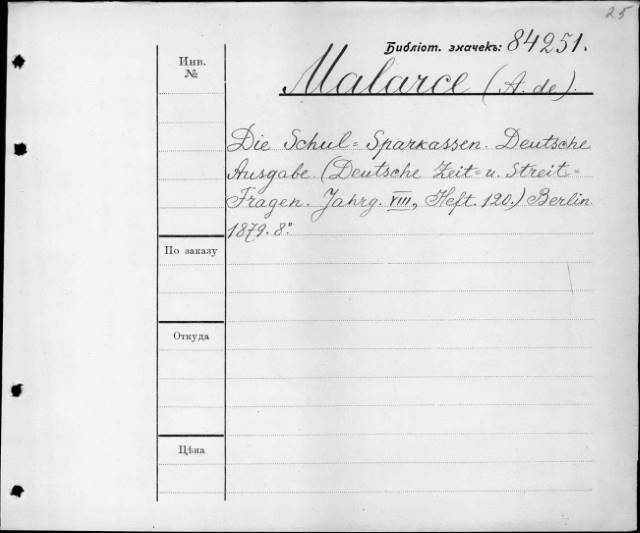 25
Библіот. значекъ: 84251.
Инв.
№
Malarce (A. de).
Die Schul=Sparkassen. Deutsche
Ausgabe. (Deutsche Zeit- u. Streit=
Fragen. Jahrg. VIII, Heft. 120.) Berlin.
1879. 8°.
По заказу
Откуда
Цѣна